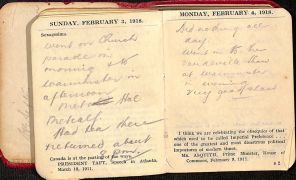 SUNDAY, FEBRUARY 3, 1918.
Sexagesima.
went on Church
parade in
morning & to
Warminster in
afternoon
met Hal
Metcalf
Had tea there
returned about
Canada is at the parting of the ways.
PRESIDENT TAFT, Speech in Atlanta,
March 10, 1911.
MONDAY, FEBRUARY 4, 1918.
Did nothing all
day
went to the
vaudeville show
at Warminster
in evening
very good show
I think we are celebrating the obsequies of that
which used to be called Imperial Preference . . .
one of the greatest and most disastrous political
impostures of modern times.
MR. ASQUITH, Prime Minister, House of
Commons, February 9, 1911.